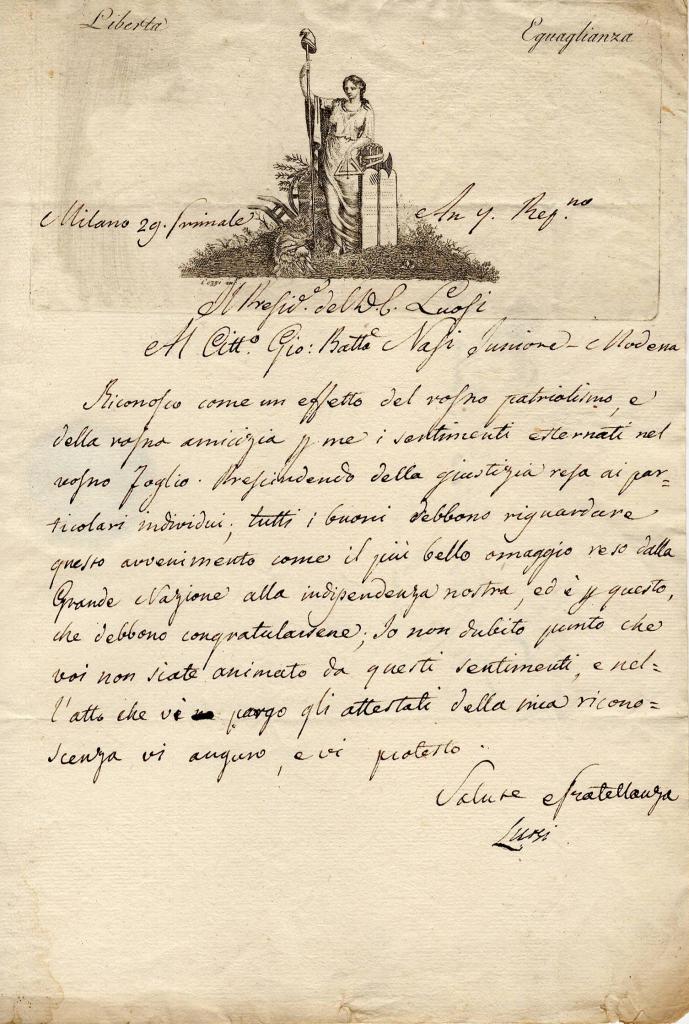 Libertà Eguaglianza
Milano 29. frimale An 7. Rep.no
Il Presid.e del D.E. Luosi
Al Citt.o Gio: Batta Nasi Juniore - Modena
Riconosco come un effetto del vostro patriotismo, e
della vostra amicizia p me i sentimenti esternati nel
vostro foglio. Prescindendo della giustizia resa ai par=
ticolari individui, tutti i buoni debbono riguardare
questo avvenimento come il più bello omaggio reso dalla
Grande Nazione alla indipendenza nostra, ed è p questo,
che debbono congratularsene; Io non dubito punto che
voi non siate animato da questi sentimenti, e nel=
l'atto che vi porgo gli attestati della mia ricono=
scenza vi auguro, e vi protesto.
Salute e fratellanza
Luosi